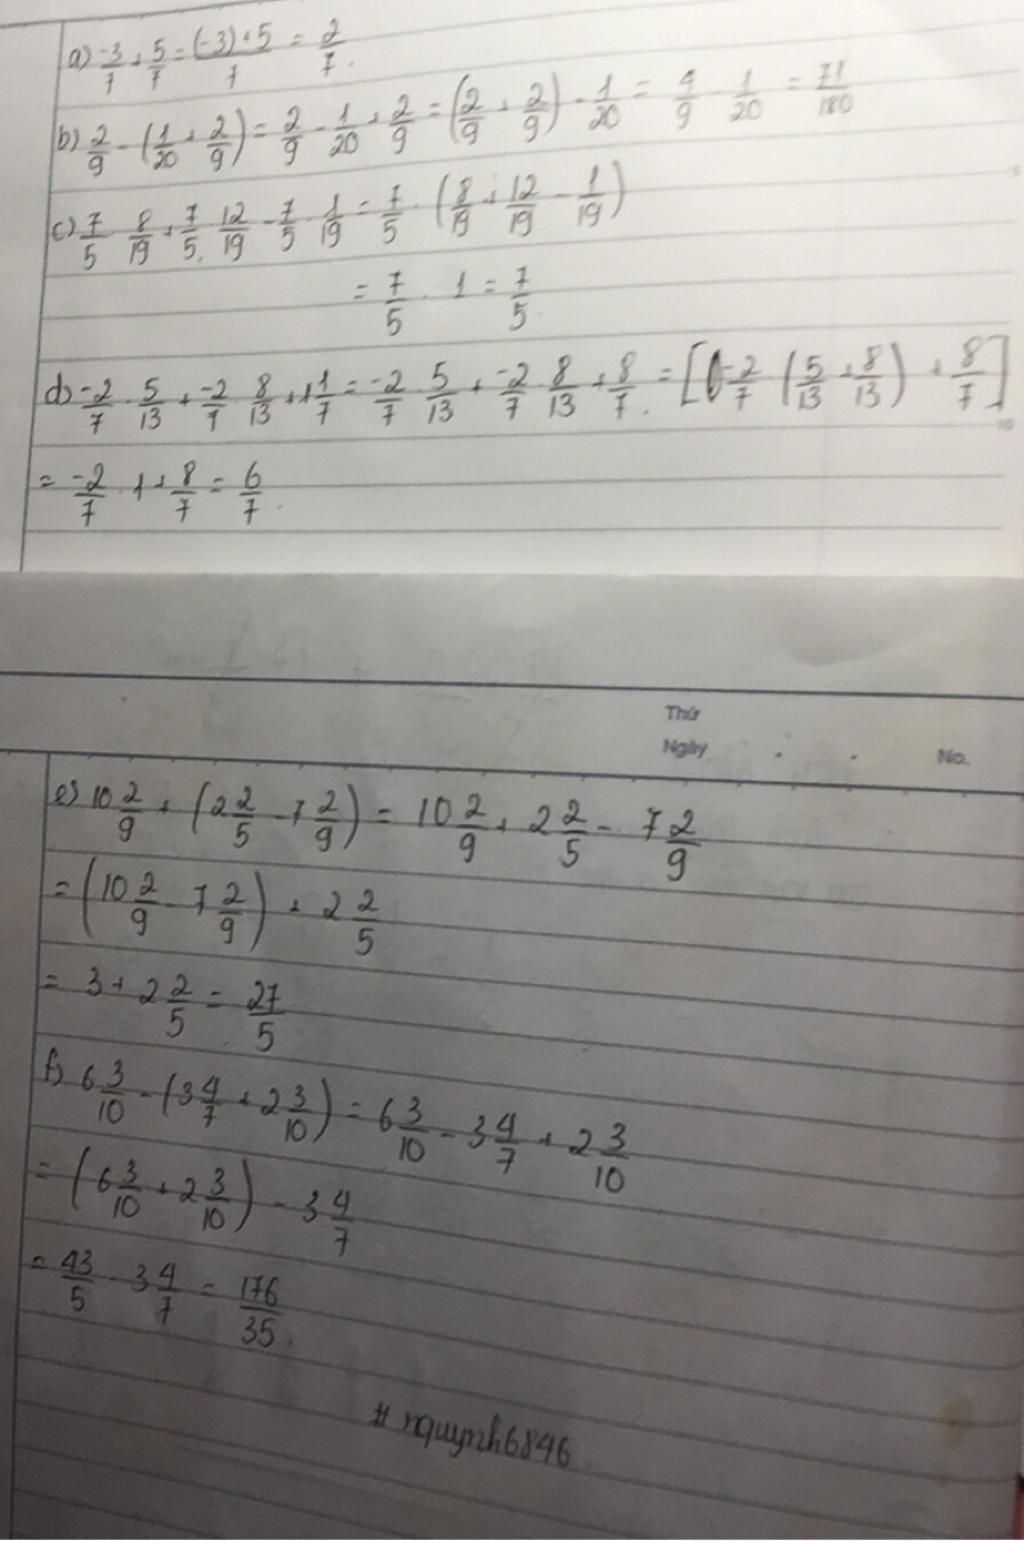 a) -3/7 + 5/7 = (-3)+5/7 = 2/7.
b) 2/9 - (1/20 + 2/9) = 2/9 - 1/20 + 2/9 = (2/9 + 2/9) - 1/20 = 4/9 - 1/20 = 71/180
c) 7/5 . 8/19 + 7/5 . 12/19 - 7/5 . 1/19 = 7/5 . (8/19 + 12/19 - 1/19)
= 7/5 . 1 = 7/5
d) -2/7 . 5/13 + -2/7 . 8/13 + 1 1/7 = -2/7 . 5/13 + -2/7 . 8/13 + 8/7. = [-2/7 (5/13 + 8/13) + 8/7]
= -2/7 . 1 + 8/7 = 6/7.
Thứ
Ngày
No.
e) 10 2/9 + (2 2/5 - 7 2/9) = 10 2/9 + 2 2/5 - 7 2/9
= (10 2/9 - 7 2/9) + 2 2/5
= 3 + 2 2/5 = 27/5
f) 6 3/10 - (3 4/7 + 2 3/10) = 6 3/10 - 3 4/7 + 2 3/10
= (6 3/10 + 2 3/10) - 3 4/7
= 43/5 - 3 4/7 = 176/35.
# nquynh6846